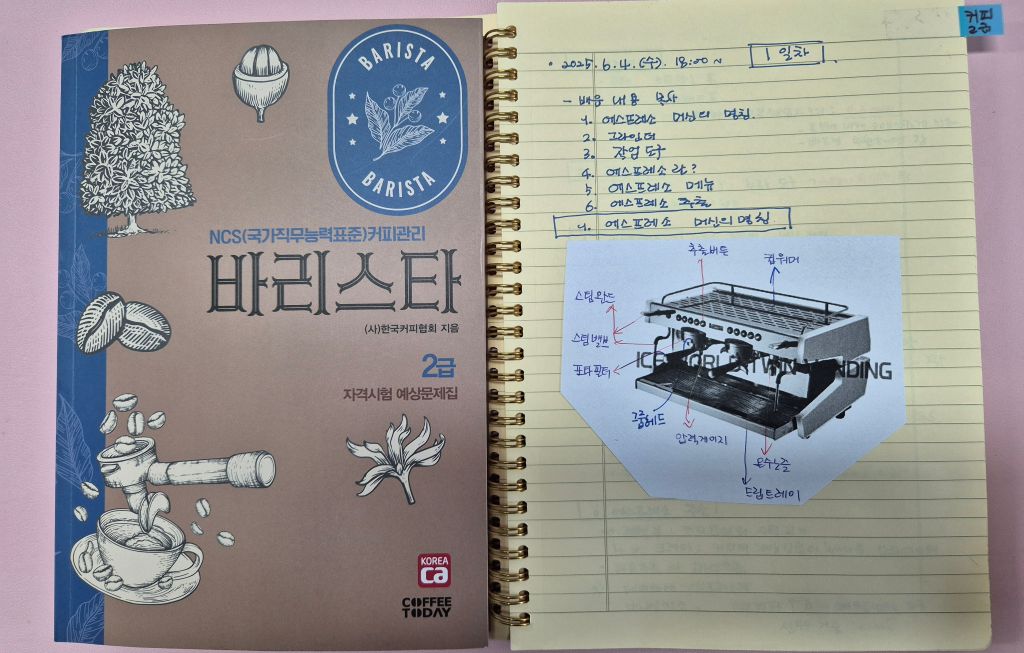 BARISTA
BARISTA
NCS(국가직무능력표준)커피관리
바리스타
(사)한국커피협회 지음
2급
자격시험 예상문제집
KOREA
ca
COFFEE
TODAY
커피
2급
• 2025. 6. 4. (수). 18:00 ~ 1일차.
- 배운 내용 복사
1. 에스프레소 머신의 명칭.
2. 그라인더
3. 작업 도구
4. 에스프레소 란?
5 에스프레소 메뉴
6. 에스프레소 추출
1. 에스프레소 머신의 명칭
추출버튼
컵워머
스팀완드
스팀밸브
포타필터
ICE WORLD TWIN VENDING
그룹헤드
압력게이지
온수노즐
드립트레이